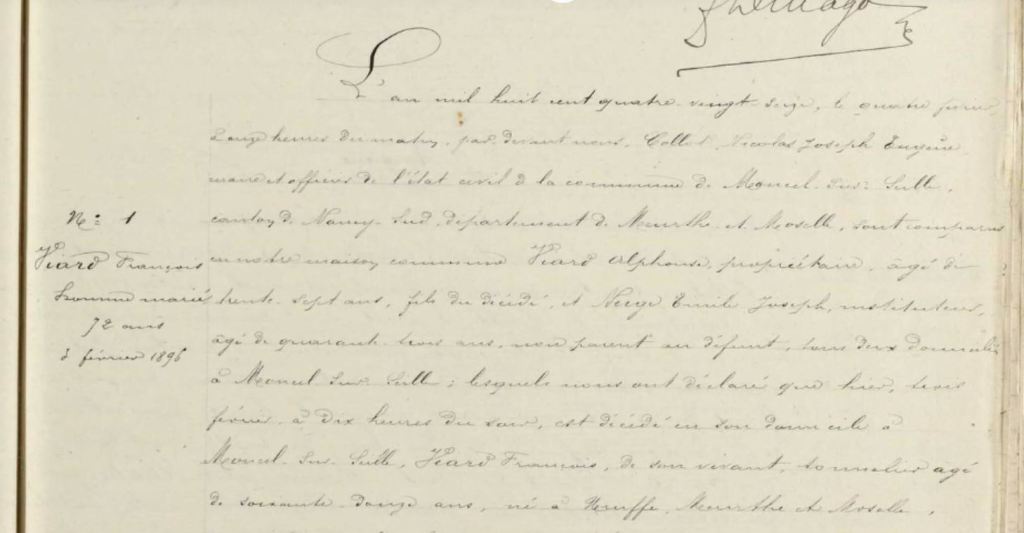 L'an mil huit cent quatre-vingt-seize, le quatre février
à onze heures du matin, par devant nous, Collot Nicolas Joseph Eugène
maire et officier de l'état civil de la commune de Moncel-sur-Seille,
canton de Nancy-Sud, département de Meurthe-et-Moselle, sont comparus
en notre maison commune Viard Alphonse, propriétaire, âgé de
trente-sept ans, fils du décédé, et Neige Emile Joseph, instituteur,
âgé de quarante-trois ans, non parent au défunt, tous deux domiciliés
à Moncel-sur-Seille ; lesquels nous ont déclaré que hier, trois
février, à dix heures du soir, est décédé en son domicile à
Moncel-sur-Seille, Viard François, de son vivant, tonnelier, âgé
de soixante-douze ans, né à Meurthe et Moselle,
N° 1
Viard François
homme marié
72 ans
3 février 1896